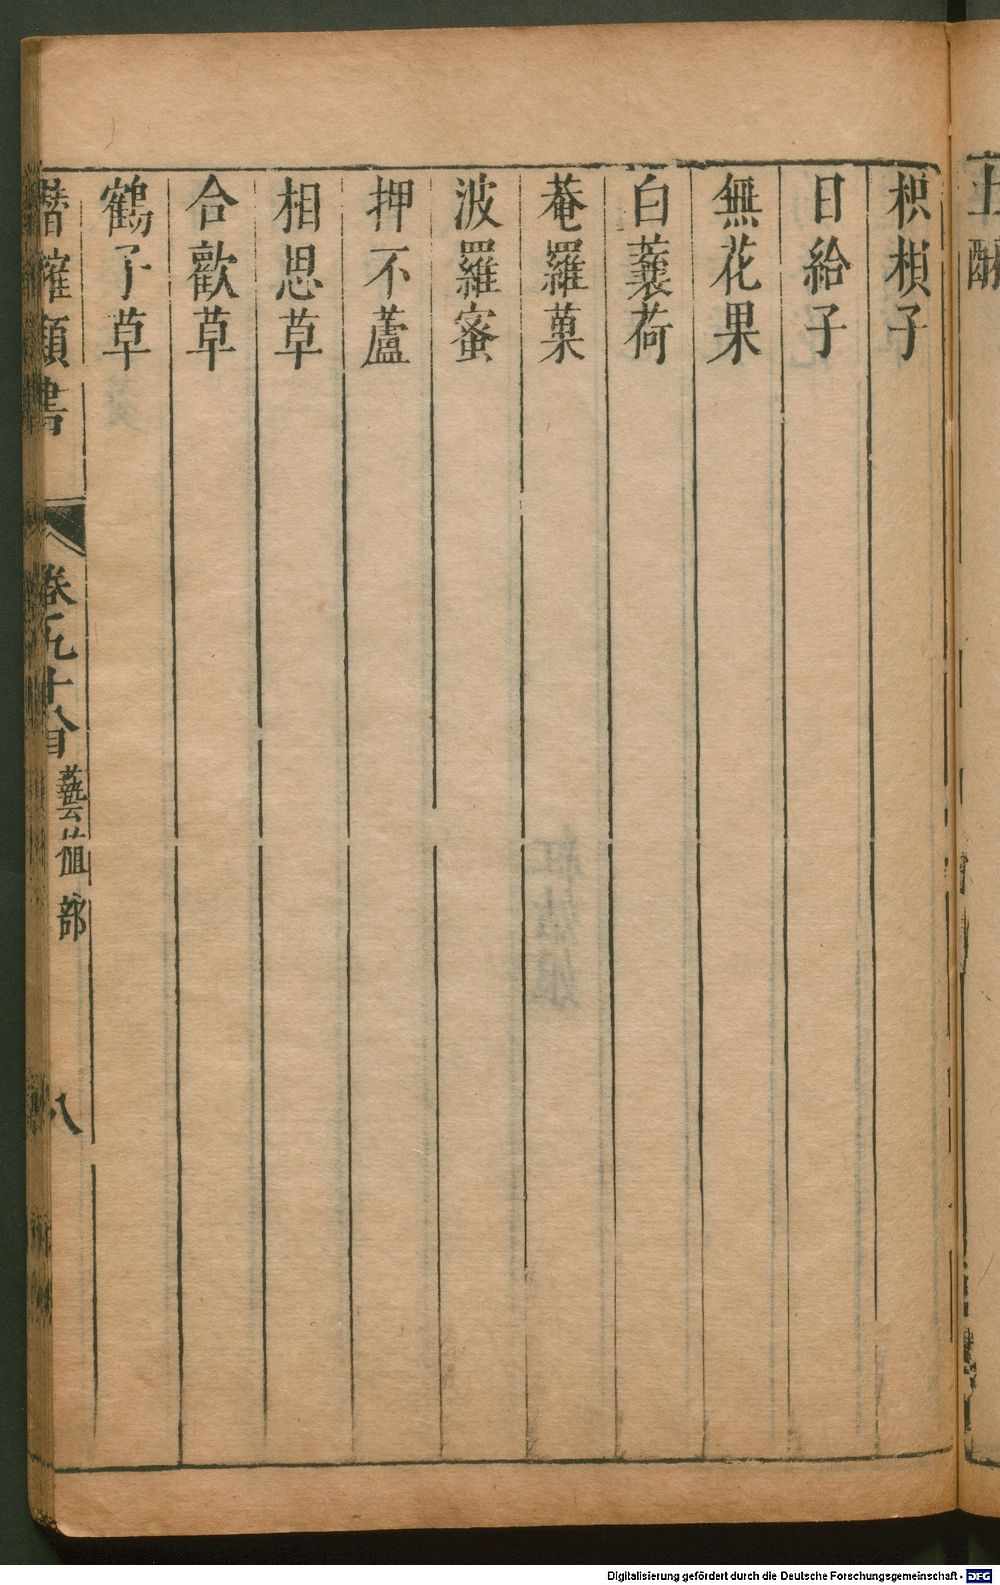 枳椇子
日給子
無花果
白蘘荷
菴羅菓
波羅蜜
押不蘆
相思草
合歡草
鶴子草
潛確類書
卷九十八目
藝植部
八
Digitalisierung gefördert durch die Deutsche Forschungsgemeinschaft - DFG